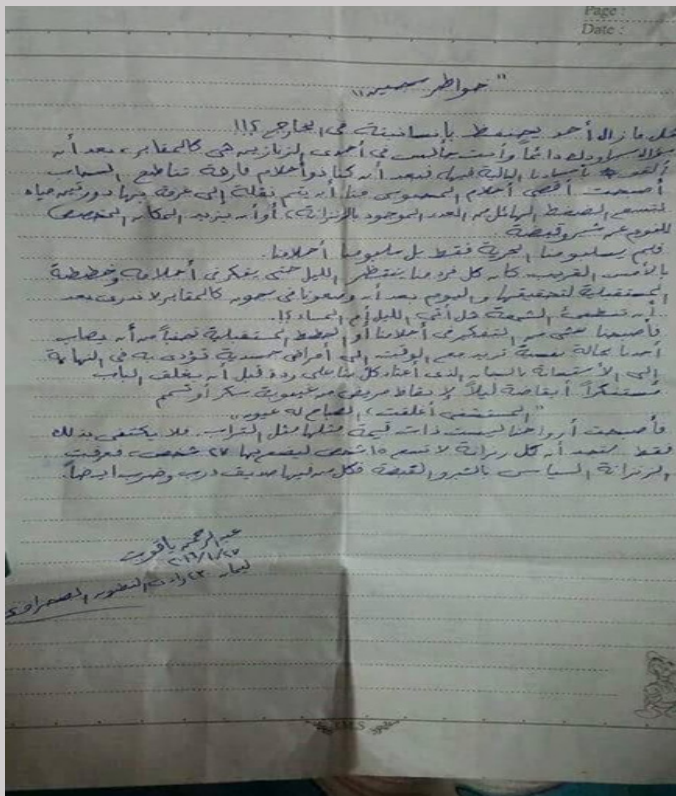 Page :
Date :
"خواطر سجين"
هل مازال أحد يحتفظ بإنسانيته في الخارج ؟!!
سؤال يراودك دائماً وأنت جالس في أحدى الزنازين هي كالمقابر، بعد أن
بأجسادنا البالية فيها، فبعد أن كنا ذو أحلام فارهة تناطح السحاب
أصبحت أقصى أحلام المحبوس منا أن يتم نقلة إلى غرفة بها دورتين مياه
لتسع الضغط الهائل من العدد الموجود بالزنزانة، أو أن يزيد المكان المخصص
للنوم عن شبر وقبضة
فلم يسلبو منا الحرية فقط بل سلبو منا أحلامنا.
بالأمس القريب كان كل فرد منا ينتظر الليل حتى يفكر في أحلامه وخططة
المستقبلية لتحقيقها، واليوم بعد أن وضعونا في سجون كالمقابر لا ندري بعد
أن تسطع الشمس هل أتى الليل أم المساء ؟!.
فأصبحنا نخشى من التفكير في أحلامنا أو الخطط المستقبلية خوفاً من أن يصاب
أحدنا بحالة نفسية تزيد مع الوقت إلى أمراض جسدية تؤدى به في النهاية
إلى الأستعانة بالسجان الذي أعتاد كل منا على ردة قبل أن يغلق الباب
مستنكراً أيقاضة ليلاً لإيقاظ مريض من غيبوبة سكر أو تسمم
"المستشفى أغلقت، الصباح له عيون"
فأصبحت أرواحنا ليست ذات قيمة مثلها مثل التراب. فلا يكتفى بذلك
فقط فتجد أن كل زنزانة لا تسع ١٥ شخص ليضع بها ٢٧ شخص، فعرفت
الزنزانة السياسي بالشبر والقبضة فكل من فيها صديق درب وضرب أيضاً.
عبد الرحمن ياقوت
٢٠١٦/١/٢٧
ليمان ٤٣٠ وادي النطرون الصحراوي